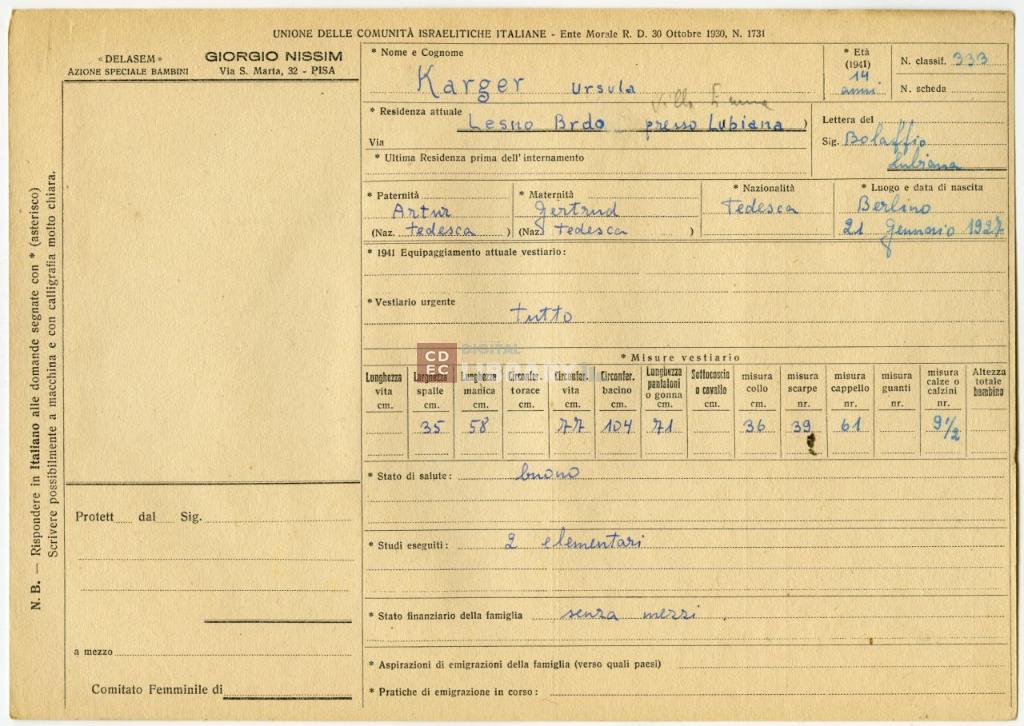 UNIONE DELLE COMUNITÀ ISRAELITICHE ITALIANE - Ente Morale R. D. 30 Ottobre 1930, N. 1731
«DELASEM»
AZIONE SPECIALE BAMBINI
GIORGIO NISSIM
Via S. Marta, 32 - PISA
* Nome e Cognome
Karger Ursula
* Età
(1941)
14
anni
N. classif. 333
N. scheda
Villa
* Residenza attuale
Lesno Brdo presso Lubiana )
Via
* Ultima Residenza prima dell'internamento
Lettera del
Sig. Bolaffio
Lubiana
* Paternità
Artur
(Naz. Tedesca )
* Maternità
Gertrud
(Naz Tedesca )
* Nazionalità
Tedesca
* Luogo e data di nascita
Berlino
21 Gennaio 1927
* 1941 Equipaggiamento attuale vestiario:
* Vestiario urgente
tutto
CDEC DIGITAL
* Misure vestiario
Lunghezza vita cm.
Larghezza spalle cm. 35
Lunghezza manica cm. 58
Circonfer. torace cm.
Circonfer. vita cm. 77
Circonfer. bacino cm. 104
Lunghezza pantaloni o gonna cm. 71
Sottocoscia o cavallo cm.
misura collo cm. 36
misura scarpe nr. 39
misura cappello nr. 61
misura guanti nr.
misura calze o calzini nr. 9 1/2
Altezza totale bambino
* Stato di salute: buono
* Studi eseguiti: 2 elementari
* Stato finanziario della famiglia senza mezzi
* Aspirazioni di emigrazioni della famiglia (verso quali paesi)
* Pratiche di emigrazione in corso:
Protett dal Sig.
a mezzo
Comitato Femminile di
N. B. — Rispondere in Italiano alle domande segnate con * (asterisco)
Scrivere possibilmente a macchina e con calligrafia molto chiara.